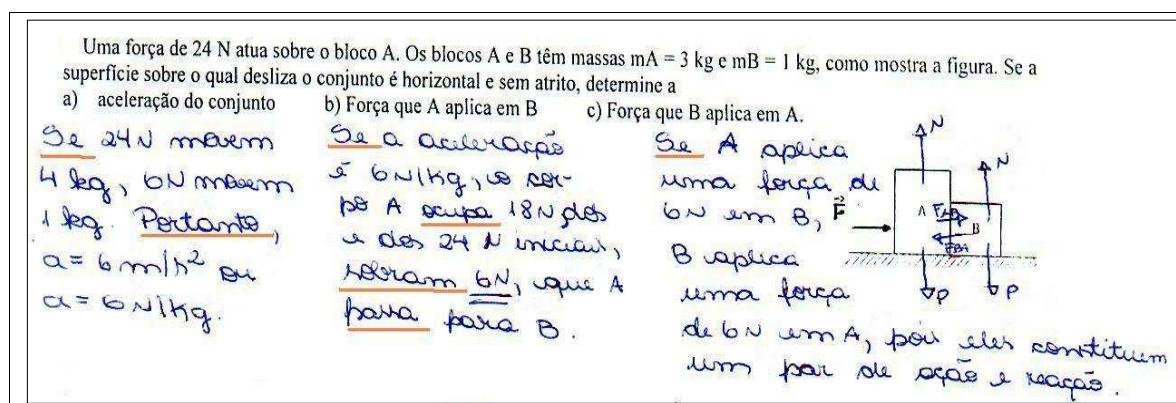 Uma força de 24 N atua sobre o bloco A. Os blocos A e B têm massas mA = 3 kg e mB = 1 kg, como mostra a figura. Se a
superfície sobre o qual desliza o conjunto é horizontal e sem atrito, determine a
a) aceleração do conjunto b) Força que A aplica em B c) Força que B aplica em A.
Se 24N movem
4 kg, 6N movem
1 kg. Portanto,
a = 6 m/s² ou
a = 6 N/kg.
Se a aceleração
é 6N/kg, o cor-
po A ocupa 18N dos
e dos 24 N iniciais,
sobram 6N, que A
passa para B.
Se A aplica
uma força de
6N em B,
B aplica
uma força
de 6N em A, pois eles constituem
um par de ação e reação.
N
N
F
A
FAB
B
FBA
P
P